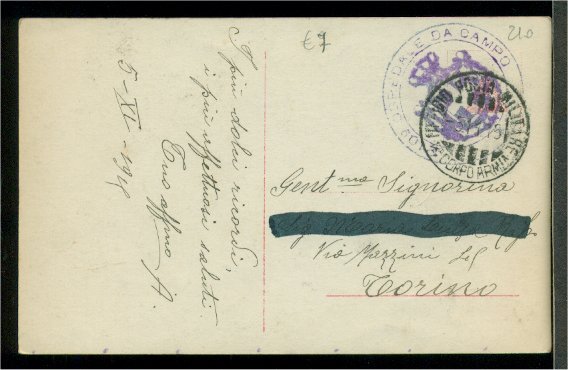 €7
210
I più dolci ricordi,
i più affettuosi saluti
Tuo affmo A.
5-XI-1915
OSPEDALE DA CAMPO
UFFICIO POSTA MILITARE
CORPO ARMATA
Gent.ma Signorina
Via Mazzini
Torino